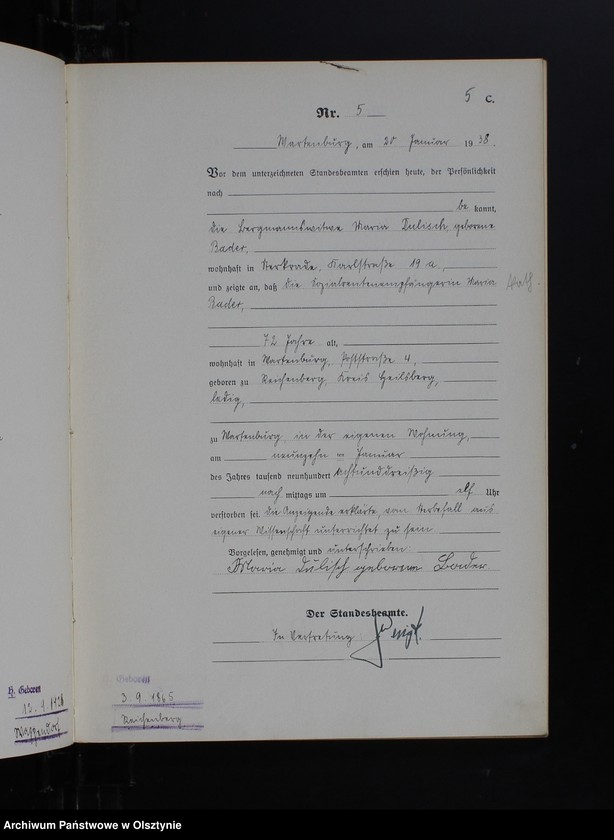 5 C.
Nr. 5
Wartenburg, am 20 Januar 1938.
Vor dem unterzeichneten Standesbeamten erschien heute, der Persönlichkeit
nach
be kannt,
die Bergmannswitwe Maria Dulisch, geborene
Bader,
wohnhaft in Sterkrade, Karlstraße 19 a,
und zeigte an, daß die Sozialrentenempfängerin Maria
Bader,
kath.
72 Jahre alt,
wohnhaft in Wartenburg, Poststraße 4,
geboren zu Reichenberg, Kreis Heilsberg,
ledig,
zu Wartenburg, in der eigenen Wohnung,
am neunzehn ten Januar
des Jahres tausend neunhundert achtunddreißig
nach mittags um elf Uhr
verstorben sei. Die Anzeigende erklärte, vom Sterbefall aus
eigener Wissenschaft unterrichtet zu sein.
Vorgelesen, genehmigt und unterschrieben
Maria Dulisch geborene Bader
Der Standesbeamte.
In Vertretung:
Geboren
3.9 1865
Reichenberg
Geboren
12. 1928
Archiwum Państwowe w Olsztynie